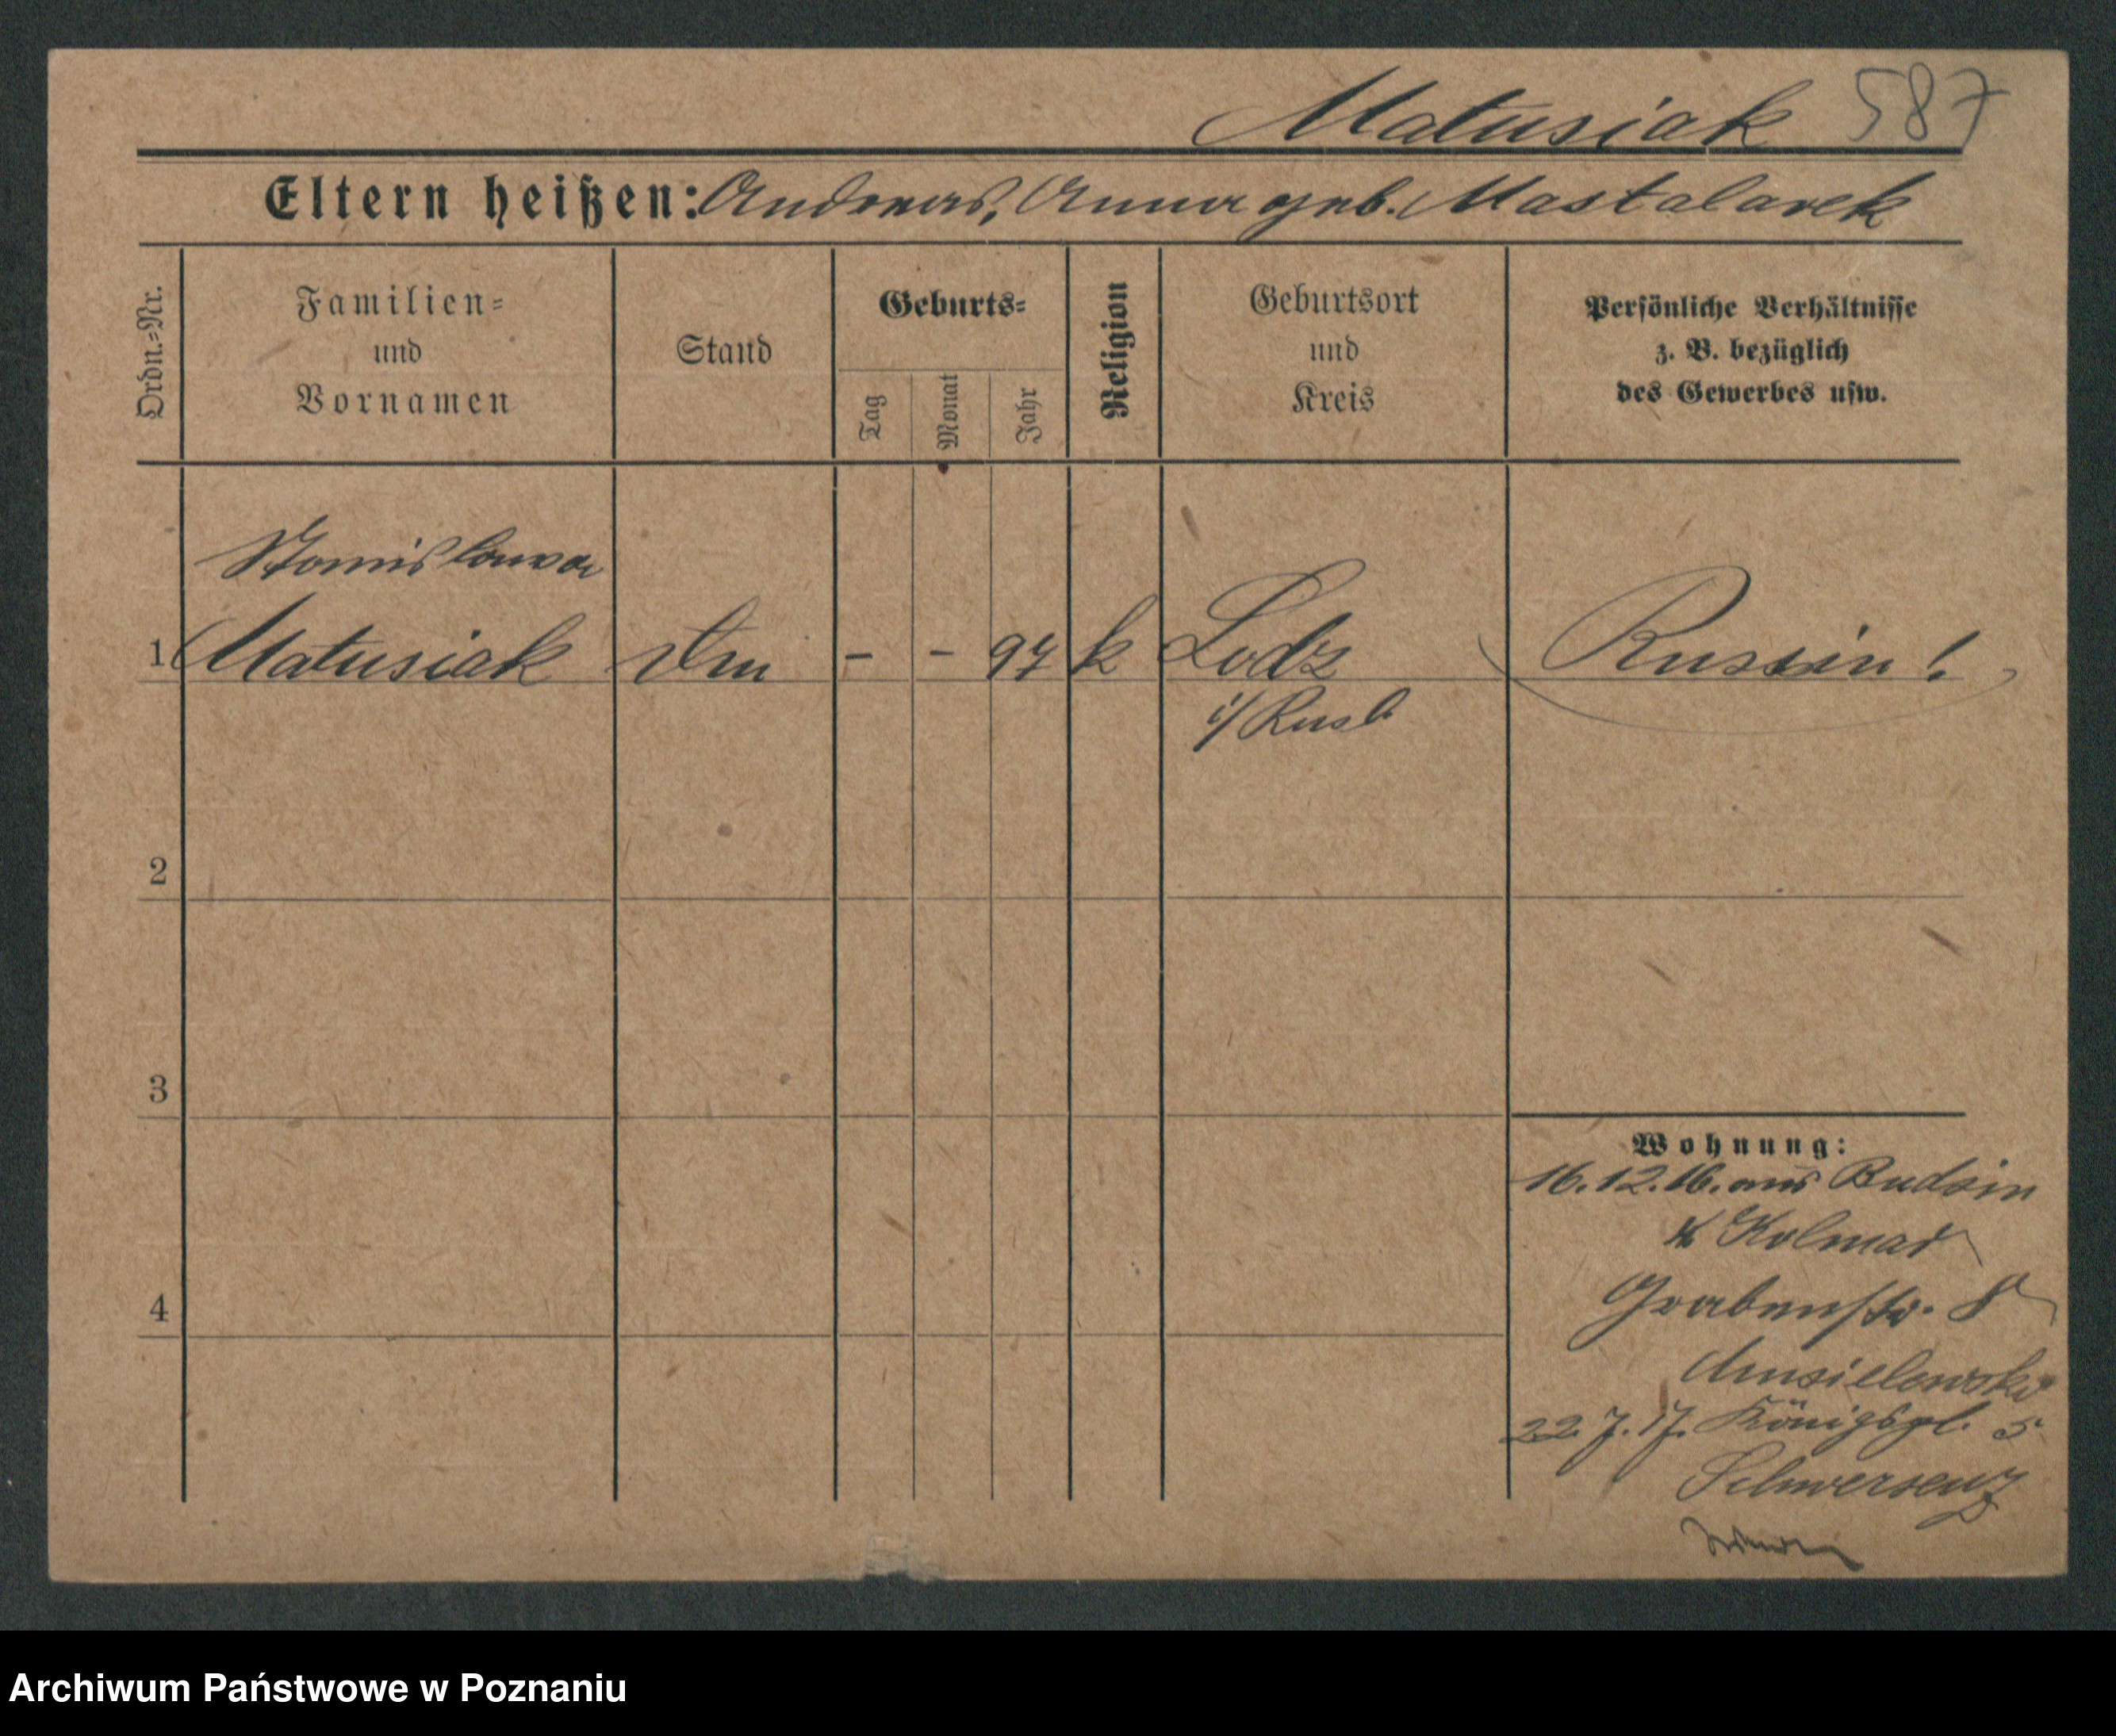 Matusiak 587
Eltern heißen: Andreas, Anna geb. Mastalarek
Ordn.=Nr.
Familien=
und
Vornamen
Stand
Geburts=
Tag
Monat
Jahr
Religion
Geburtsort
und
Kreis
Persönliche Verhältnisse
z. B. bezüglich
des Gewerbes usw.
Stanislawa
1 Matusiak - - 97 k Lodz Russin!
i/Rusl.
2
3
4
Wohnung:
16.12.16. aus Budsin
Kolmar
Grabenstr. 8
22.7.17. Königspl. 5
Schwersenz
Archiwum Państwowe w Poznaniu